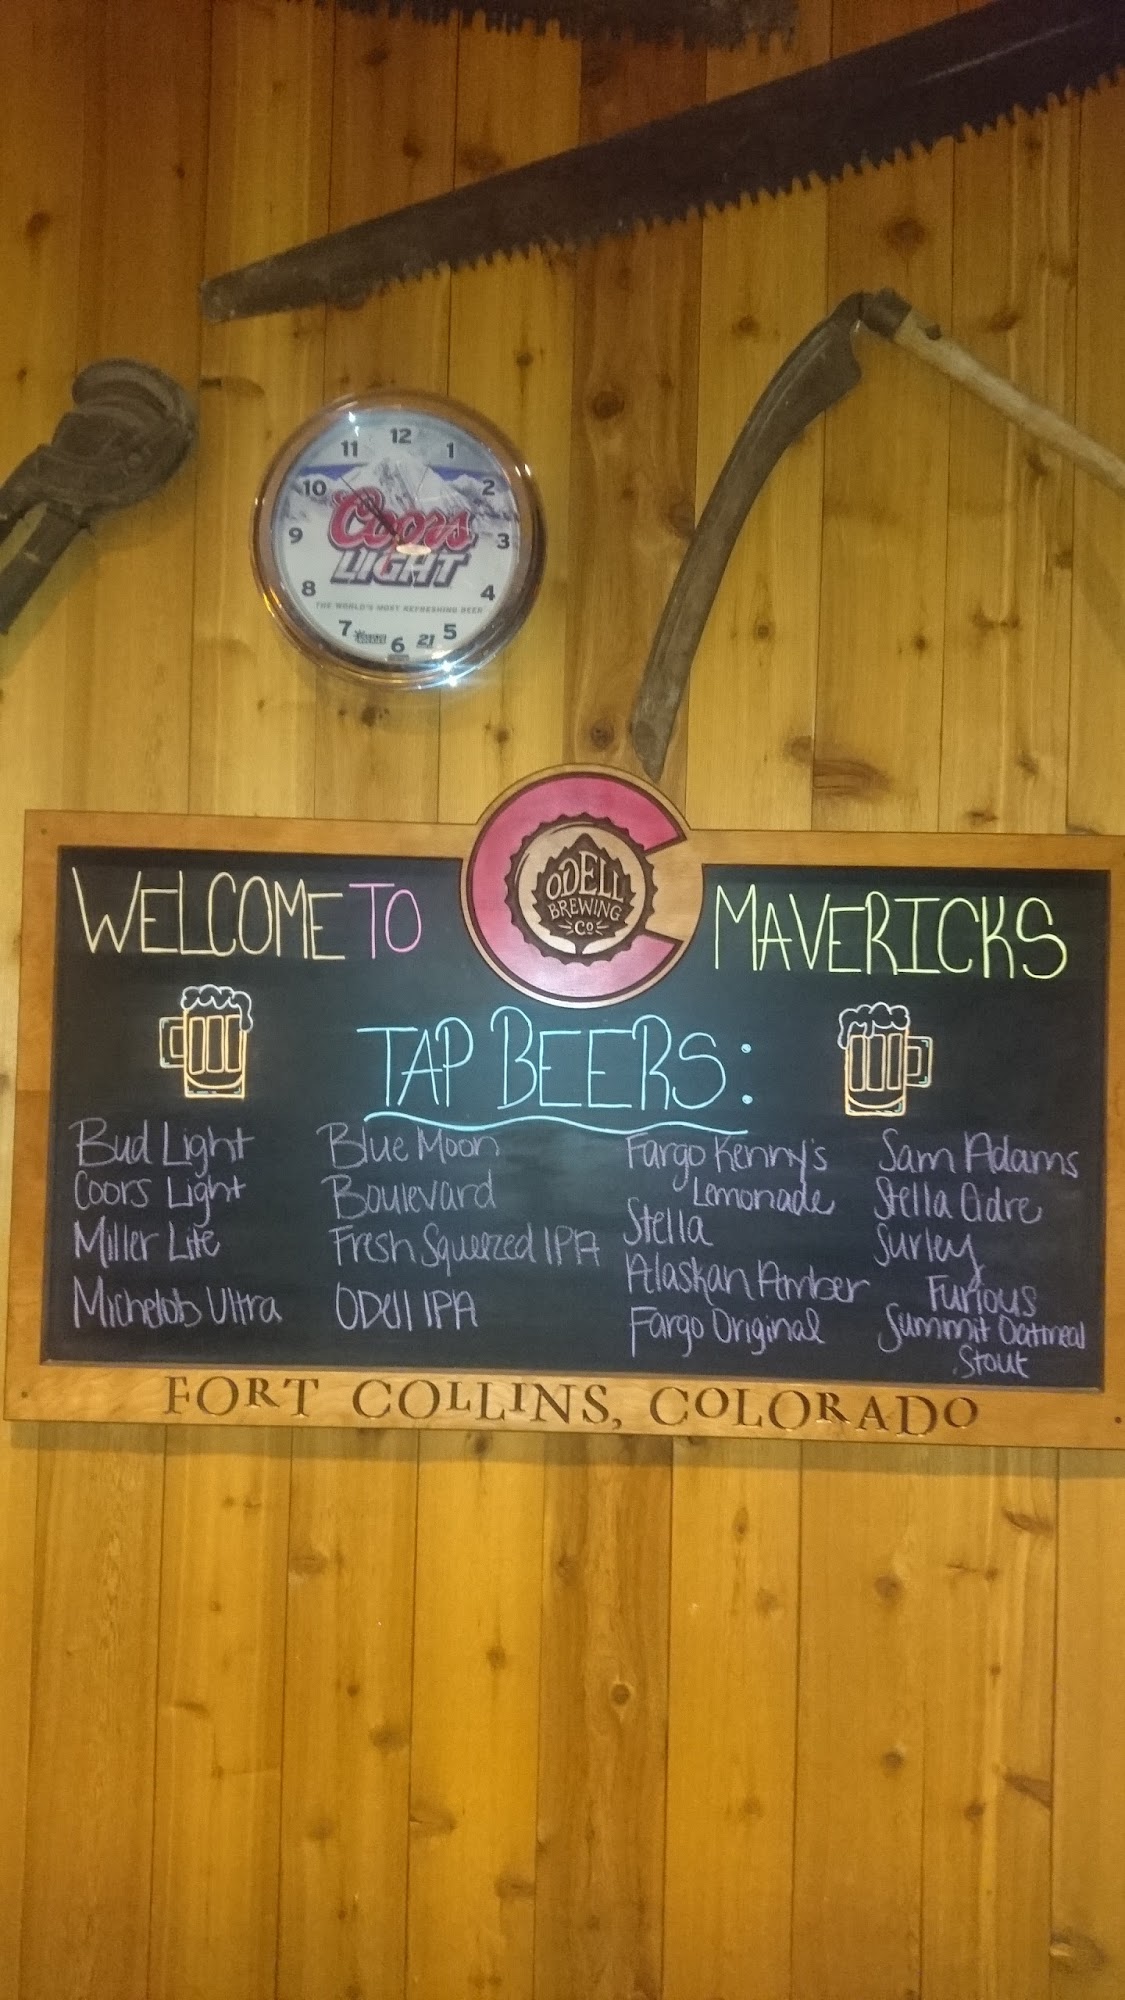 12
11 1
10 2
9 3
8 4
7 5
6
Coors
LIGHT
THE WORLD'S MOST REFRESHING BEER
21
ODELL
BREWING
CO
WELCOME TO MAVERICKS
TAP BEERS:
Bud Light
Coors Light
Miller Lite
Michelob Ultra
Blue Moon
Boulevard
Fresh Squeezed IPA
ODell IPA
Fargo Kenny's
Lemonade
Stella
Alaskan Amber
Fargo Original
Sam Adams
Stella Cidre
Surley
Furious
Summit Oatmeal
Stout
FORT COLLINS, COLORADO